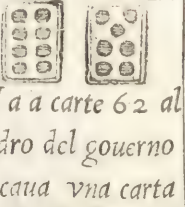 a a carte 62 al
dro del gouerno
caua vna carta